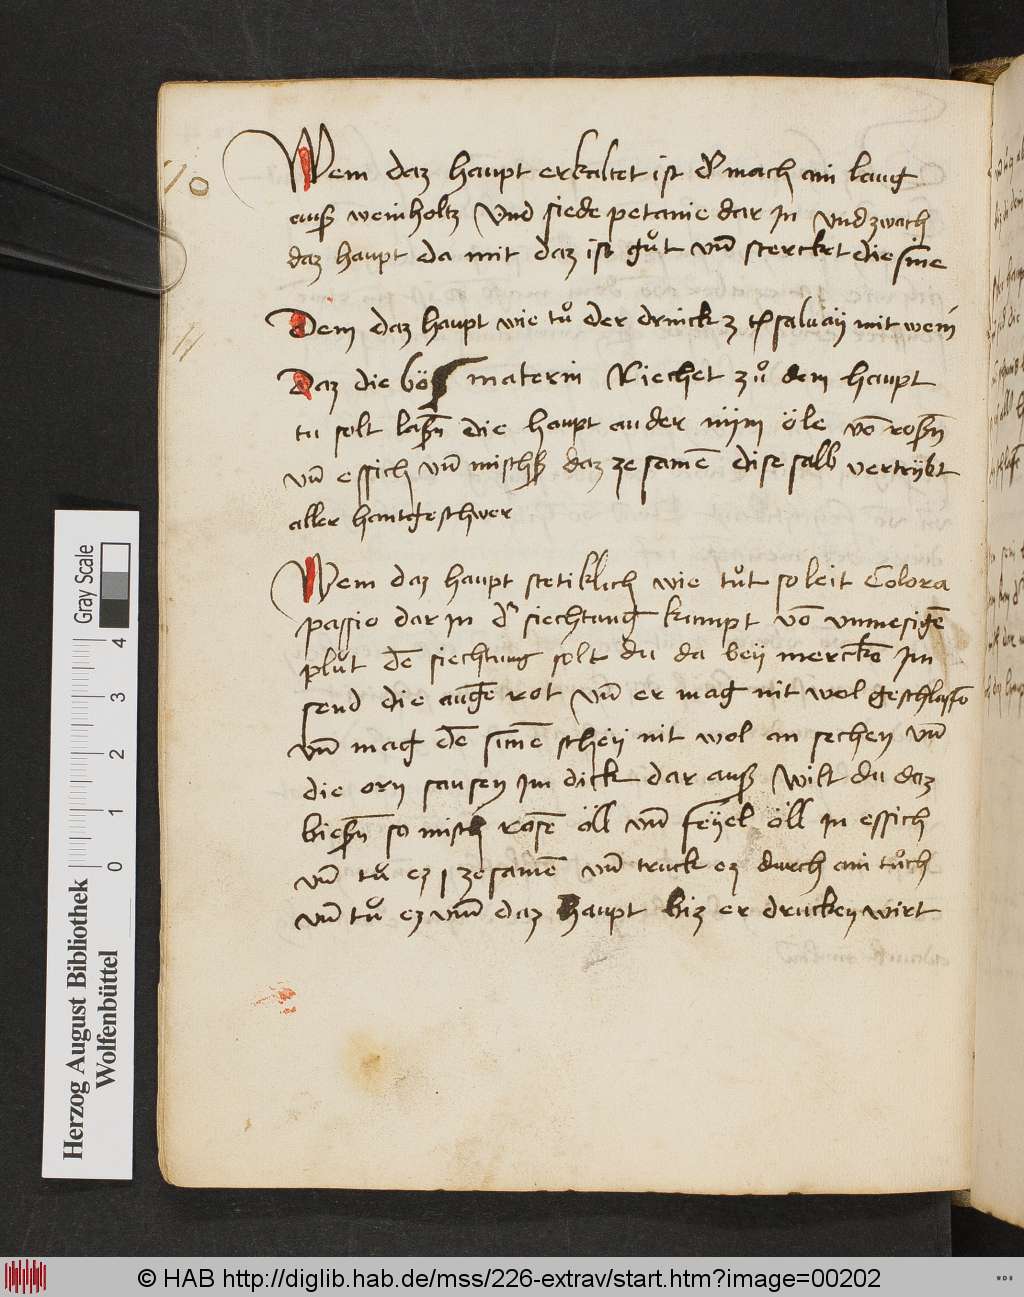 10
Wem daz haupt erkaltet ist dʾ mach ain laug
auß weinholtz Vnd siede petanie dar In vnd zwach
daz haupt da mit daz ist gůt vn̄ sterckt die sīne
11
Dem daz haupt wie tů der drinck z salvaÿ mit wein
Daz die böß materin Riechet zů dem haupt
tu solt laßn̄ die haupt ander nÿm öle vō roßn̄
vn̄ essich vn̄ misch daz ze samē dise salb vertrÿbt
aller hautgeschwer
Wem daz haupt stetiklich wie tůt so leit Colora
passio dar In dʾ siechtaug kumpt vō vnmesigē
plůt dē siechtung solt du da beÿ merckē Im
send die augē rot vn̄ er mag nit wol geschlaffē
vn̄ mag dē sūnē scheÿ nit wol an sechen vn̄
die orn sausen im dick dar auß Wilt du daz
bießn̄ so misch rosē öll vn̄ feÿel öll in essich
vn̄ tů ez zesamē vn̄ truck ez durch ain tůch
vn̄ tů ez vm̄ daz haupt biz er drucken wirt
Gray Scale
4
3
2
1
0
Herzog August Bibliothek
Wolfenbüttel
© HAB http://diglib.hab.de/mss/226-extrav/start.htm?image=00202